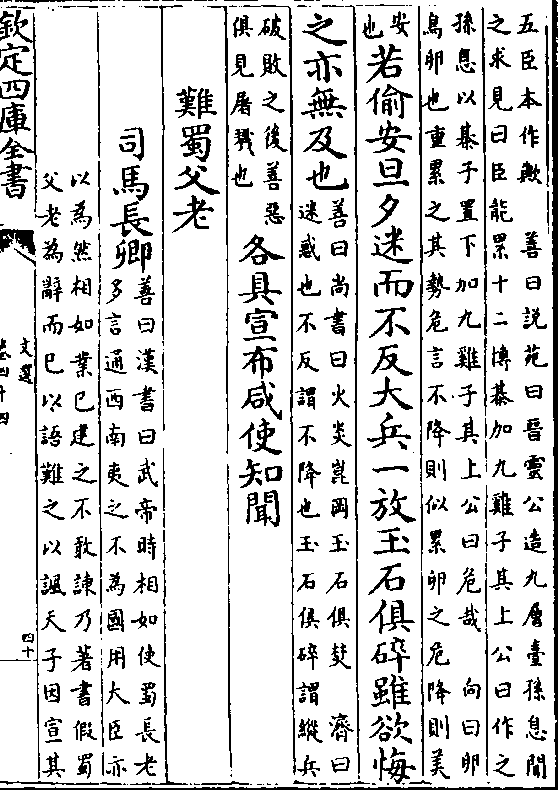 五臣本作歟　善曰説苑曰晉靈公造九層臺孫息聞
之求見曰臣能累十二博棊加九雞子其上公曰作之
孫息以棊子置下加九雞子其上公曰危哉　向曰卵
鳥卵也重累之其勢危言不降則似累卵之危降則美
安
也
若偷安旦夕迷而不反大兵一放玉石俱碎雖欲悔
之亦無及也
善曰尚書曰火炎崑岡玉石俱焚　濟曰
迷惑也不反謂不降也玉石俱碎謂縱兵
破敗之後善惡
俱見屠戮也
各具宣布咸使知聞
難蜀父老
司馬長卿
善曰漢書曰武帝時相如使蜀長老
多言通西南夷之不為國用大臣亦
以為然相如業已建之不敢諫乃著書假蜀
父老為辭而已以語難之以諷天子因宣其
欽定四庫全書
文選
卷四十四
四十